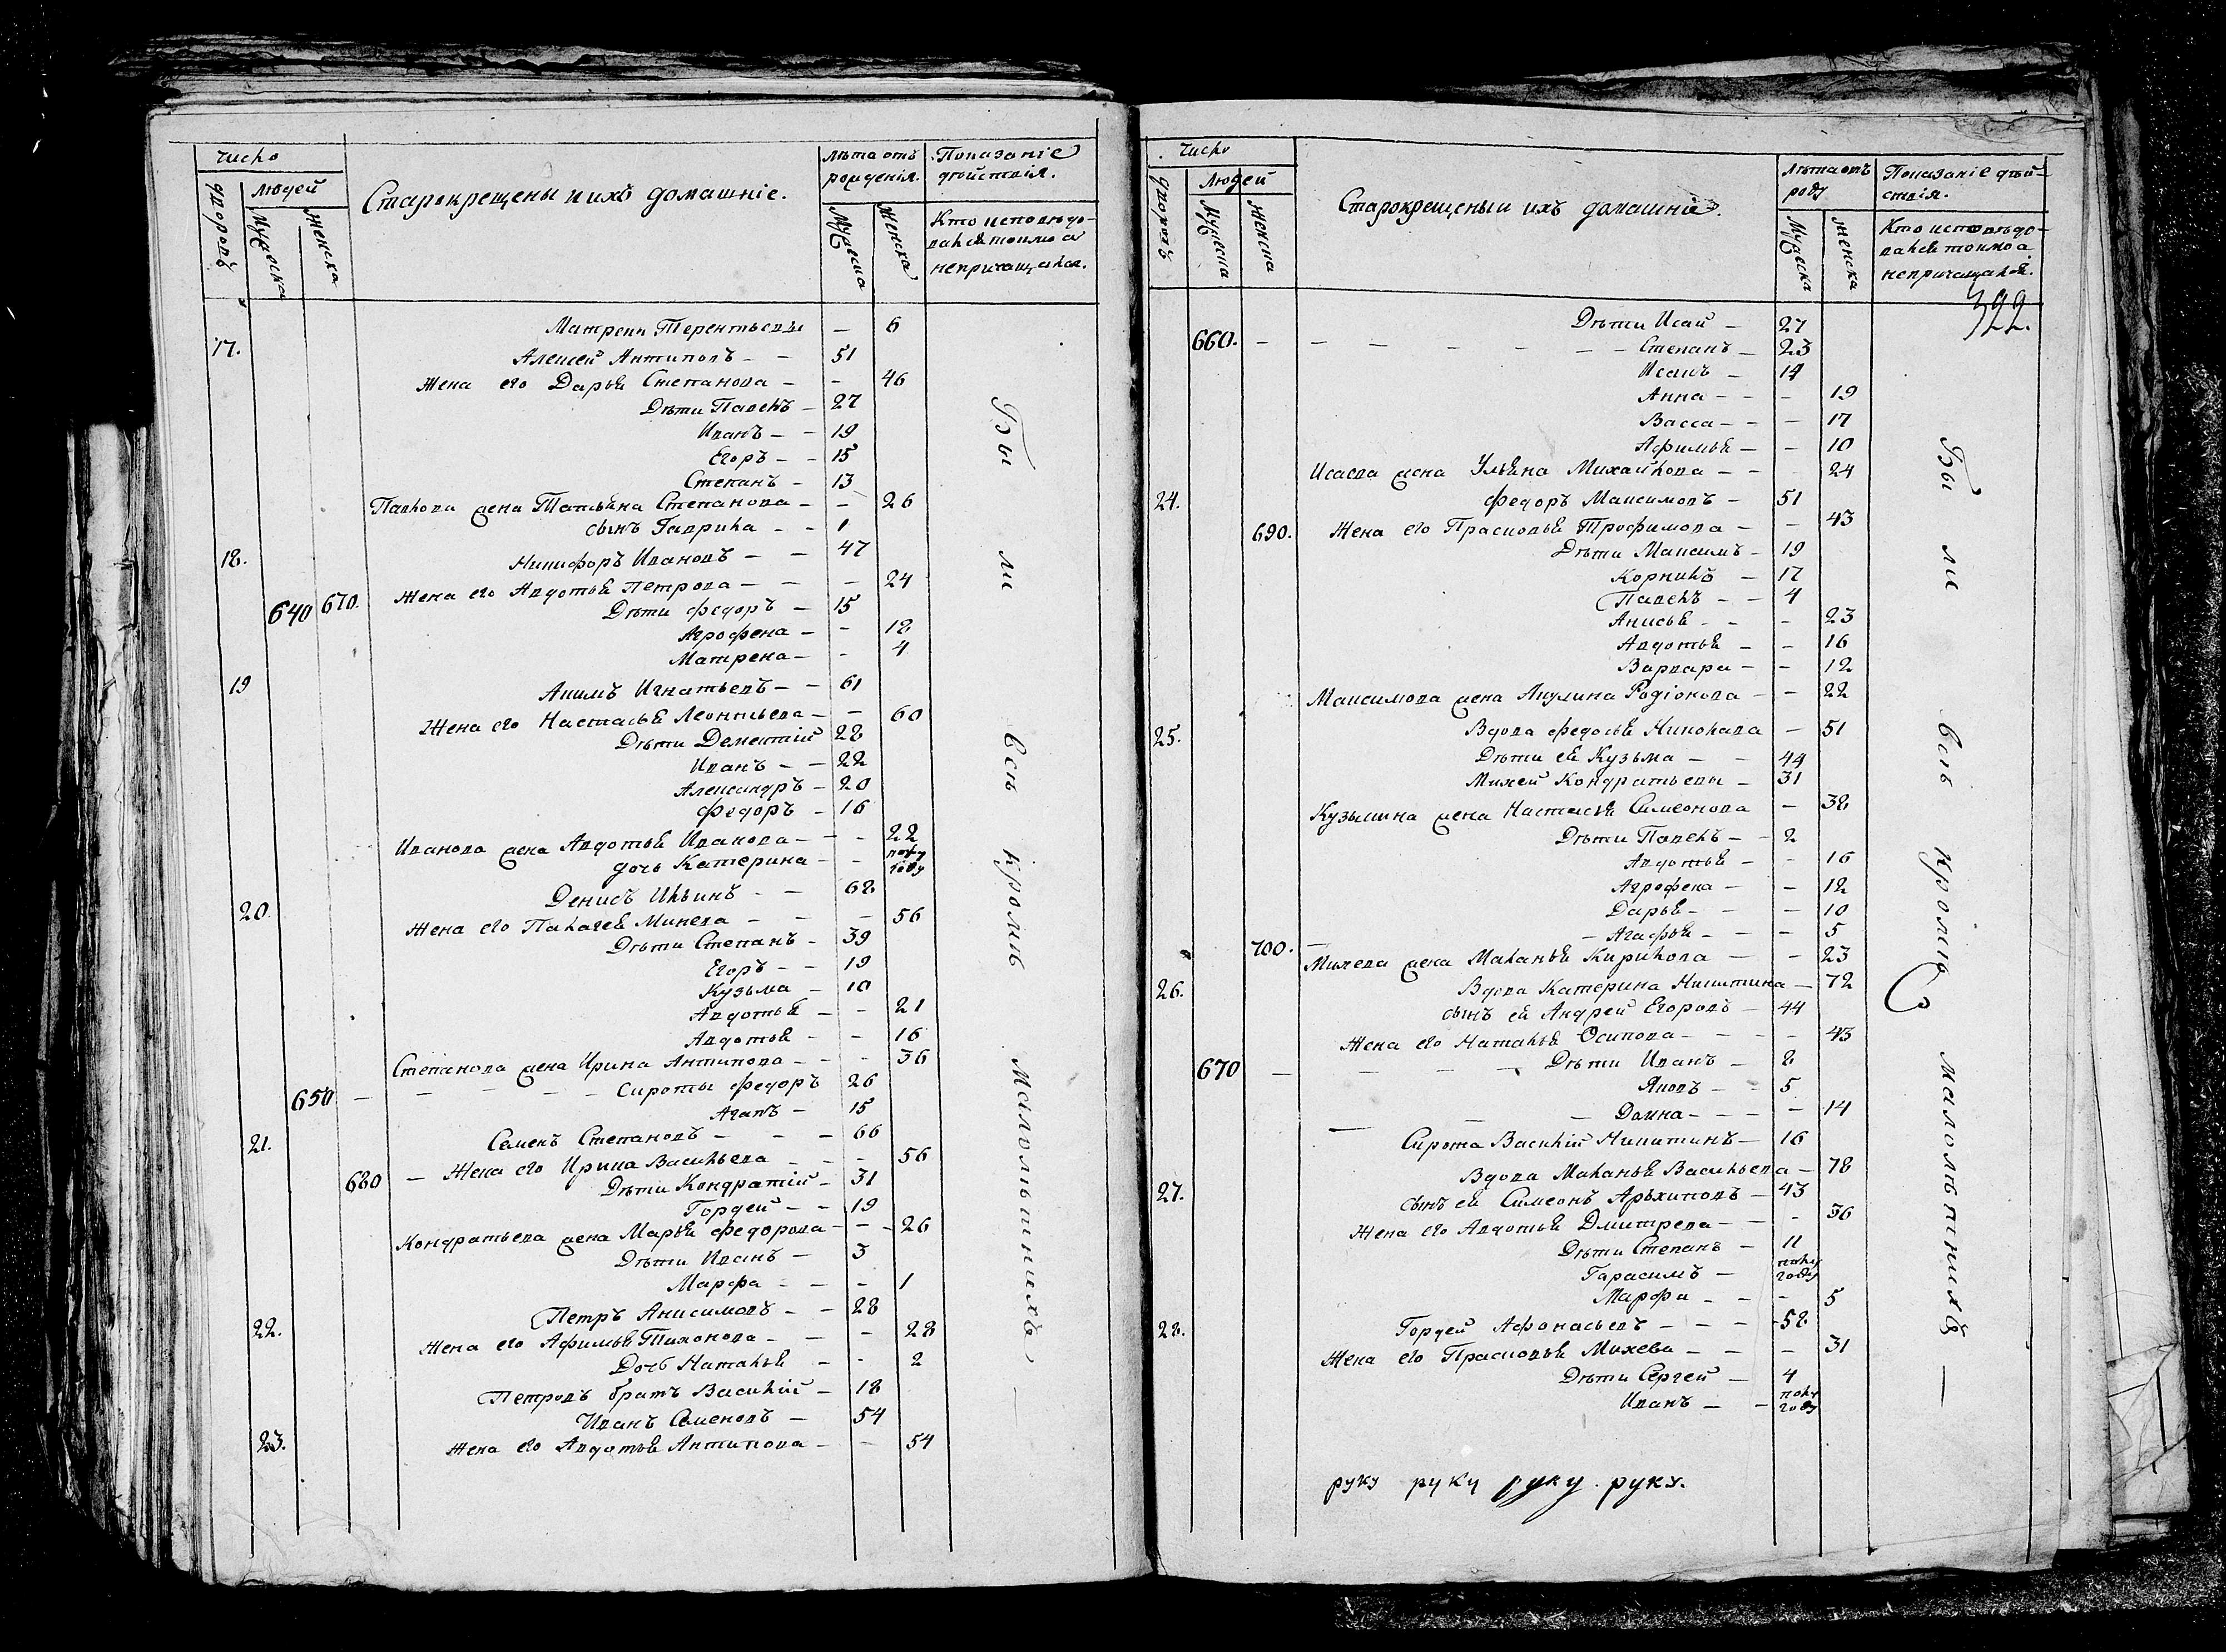 Число
Людей
дворовъ
Мужеска
Женска
Старокрещены и ихъ домашніе.
Лѣта отъ рожденія.
Мужеска
Женска
Показаніе дѣйствія.
Кто исповѣдо-
вался токмо а
непричащался.
Матрена Терентьевы — 6
17. Алексей Антиповъ — — 51
Жена его Дарья Степанова — — 46
Дѣти Павелъ — 27
Иванъ — — 19
Егоръ — — 15
Степанъ — 13
Павлова жена Татьяна Степанова — — 26
сынъ Гаврила — — 1
18. Никифоръ Ивановъ — — 47
640 670. Жена его Авдотья Петрова — — — 24
Дѣти Федоръ — 15
Агрофена — — 12
Матрена — — 4
19 Акимъ Игнатьевъ — — 61
Жена его Настасья Леонтьева — — 60
Дѣти Дементій 28
Иванъ — — 22
Александръ — 20
Федоръ — 16
Иванова жена Авдотья Иванова — — — 22
дочь Катерина — — полу году
20. Денисъ Ильинъ — — 62
Жена его Палагея Минева — — — 56
Дѣти Степанъ — 39
Егоръ — — 19
Кузьма — 10
Авдотья — — 21
Авдотья — — 16
Степанова жена Ирина Антипова — — — 36
650 — — — — — Сироты Федоръ 26
Агапъ — 15
21. Семенъ Степановъ — — — 66
680 — Жена его Ирина Васильева — — — 56
Дѣти Кондратій — 31
Гордей — — 19
Кондратьева жена Марья Федорова — — — 26
Дѣти Иванъ — 3
Марфа — — — 1
22. Петръ Анисимовъ — — 28
Жена его Афимья Тихонова — — — 28
Дочь Наталья — — 2
Петровъ братъ Василій — 18
23. Иванъ Семеновъ — 54
Жена его Авдотья Антипова — — 54
Бы ли всѣ кромѣ малолѣтнихъ —
Число
Людей
дворовъ
Мужеска
Женска
Старокрещены и ихъ домашніе.
Лѣта отъ роду
Мужеска
Женска
Показаніе дѣй-
ствія.
Кто исповѣдо-
вался токмо а
непричащался.
322.
Дѣти Исай — 27
660. — — — — — — — — Степанъ — 23
Исакъ — 14
Анна — — — 19
Васса — — — 17
Афимья — — 10
Исаева жена Ульяна Михайлова — — 24
24. Федоръ Максимовъ — 51
690. Жена его Прасковья Трофимова — — 43
Дѣти Максимъ — 19
Корнилъ — 17
Павелъ — — 4
Анисья — — — 23
Авдотья — — 16
Варвара — — 12
Максимова жена Акулина Родіонова — — 22
25. Вдова Федосья Николаева — 51
Дѣти ея Кузьма — — 44
Михей Кондратьевы — 31
Кузьмина жена Настасья Симеонова — 38
Дѣти Павелъ — — 2
Авдотья — — 16
Агрофена — — 12
Дарья — — — 10
700. — — Агафья — — — 5
Михева жена Маланья Кирилова — — 23
26. Вдова Катерина Никитина — 72
сынъ ея Андрей Егоровъ — 44
Жена его Наталья Осипова — — — 43
670 — — — — — Дѣти Иванъ — 8
Яковъ — — 5
— — — Домна — — — — 14
Сирота Василій Никитинъ — 16
27. Вдова Маланья Васильева — 78
сынъ ея Симеонъ Архиповъ — 43
Жена его Авдотья Дмитрева — — — 36
Дѣти Степанъ — 11
Гарасимъ — полу году
Марфа — — — 5
28. Гордей Афонасьевъ — — — 58
Жена его Прасковья Михева — — — 31
Дѣти Сергей — 4
Иванъ — — полу году
Бы ли всѣ кромѣ малолѣтнихъ —
руку руку руку. руку.